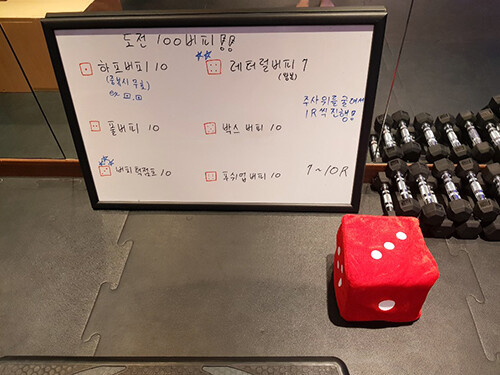 도전 100버피!!
하프버피 10
(중복시 무효)
레터럴버피 7
(왕복)
주사위를 굴려서
1R씩 진행!
풀버피 10
박스 버피 10
버피턱점프 10
푸쉬업버피 10
7~10R